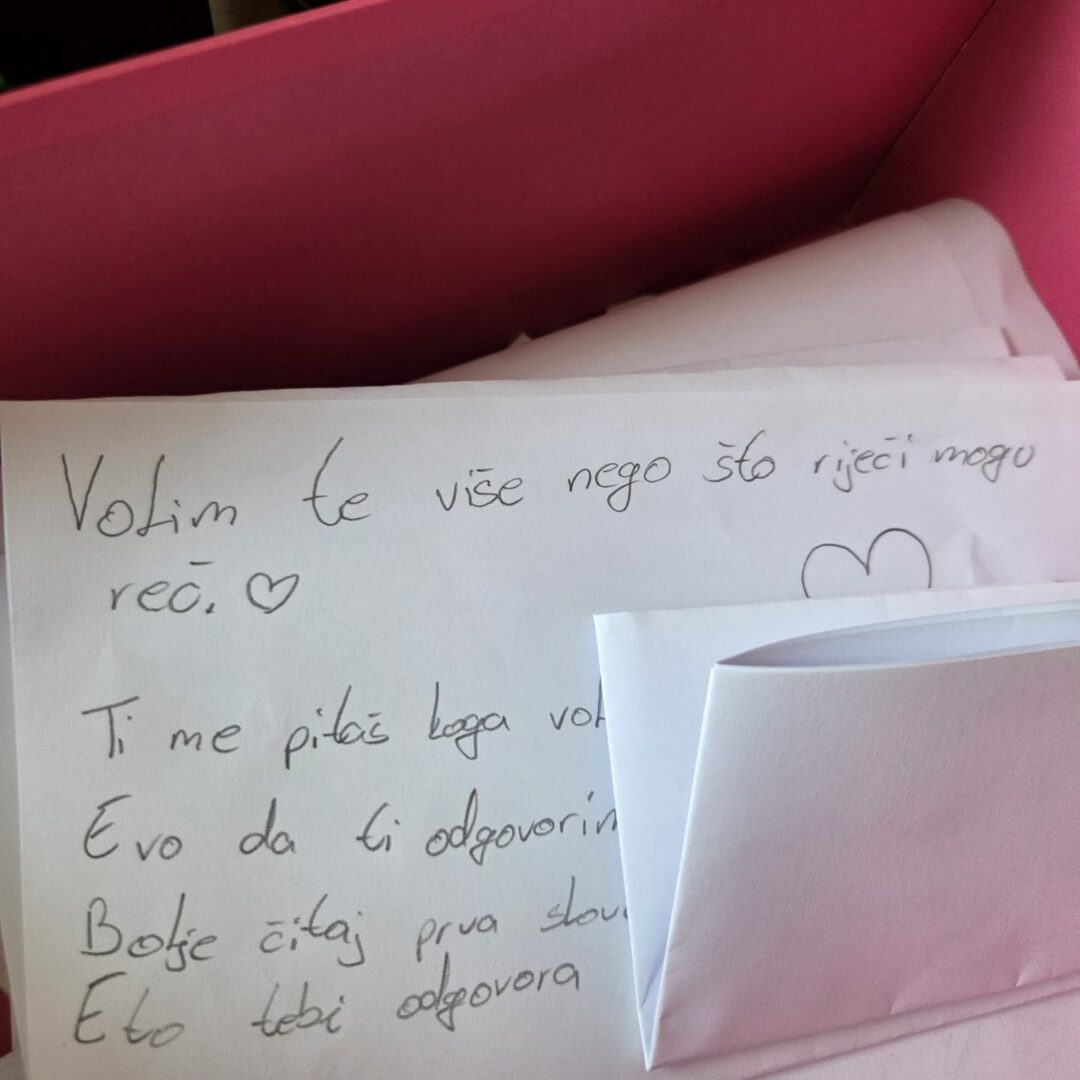 Volim te više nego što riječi mogu
reč. ♡
Ti me pitaš koga
Evo da ti
Bolje čitaj prva
Eto tebi odgovora